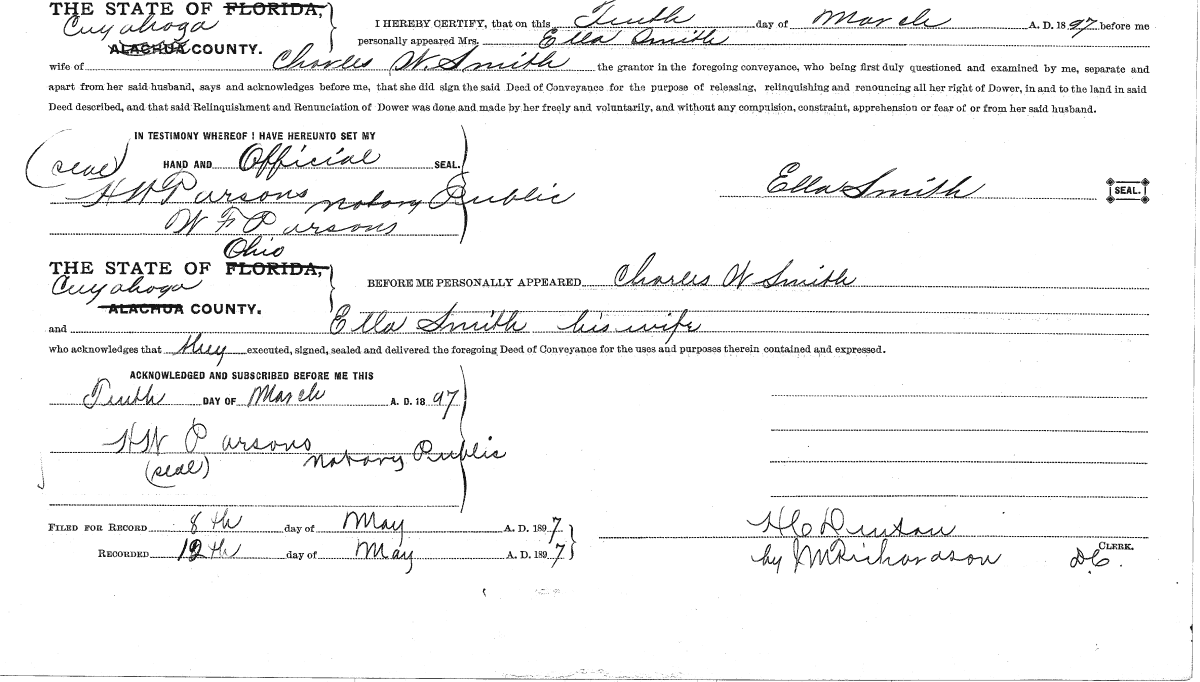 THE STATE OF FLORIDA,
Cuyahoga
ALACHUA COUNTY.
I HEREBY CERTIFY, that on this Tenth day of March A. D. 1897 before me
personally appeared Mrs. Ella Smith
wife of Charles W. Smith the grantor in the foregoing conveyance, who being first duly questioned and examined by me, separate and
apart from her said husband, says and acknowledges before me, that she did sign the said Deed of Conveyance for the purpose of releasing, relinquishing and renouncing all her right of Dower, in and to the land in said
Deed described, and that said Relinquishment and Renunciation of Dower was done and made by her freely and voluntarily, and without any compulsion, constraint, apprehension or fear of or from her said husband.
IN TESTIMONY WHEREOF I HAVE HEREUNTO SET MY
(seal) HAND AND Official SEAL.
HW Parsons Notary Public
Ella Smith SEAL.
W F Parsons
Ohio
THE STATE OF FLORIDA,
Cuyahoga
ALACHUA COUNTY.
BEFORE ME PERSONALLY APPEARED Charles W Smith
and Ella Smith his wife
who acknowledges that they executed, signed, sealed and delivered the foregoing Deed of Conveyance for the uses and purposes therein contained and expressed.
ACKNOWLEDGED AND SUBSCRIBED BEFORE ME THIS
Tenth DAY OF March A. D. 1897
HW Parsons
(seal) Notary Public
FILED FOR RECORD 8th day of May A. D. 1897
H C Denton
RECORDED 12th day of May A. D. 1897
CLERK.
by J M Richardson DC.